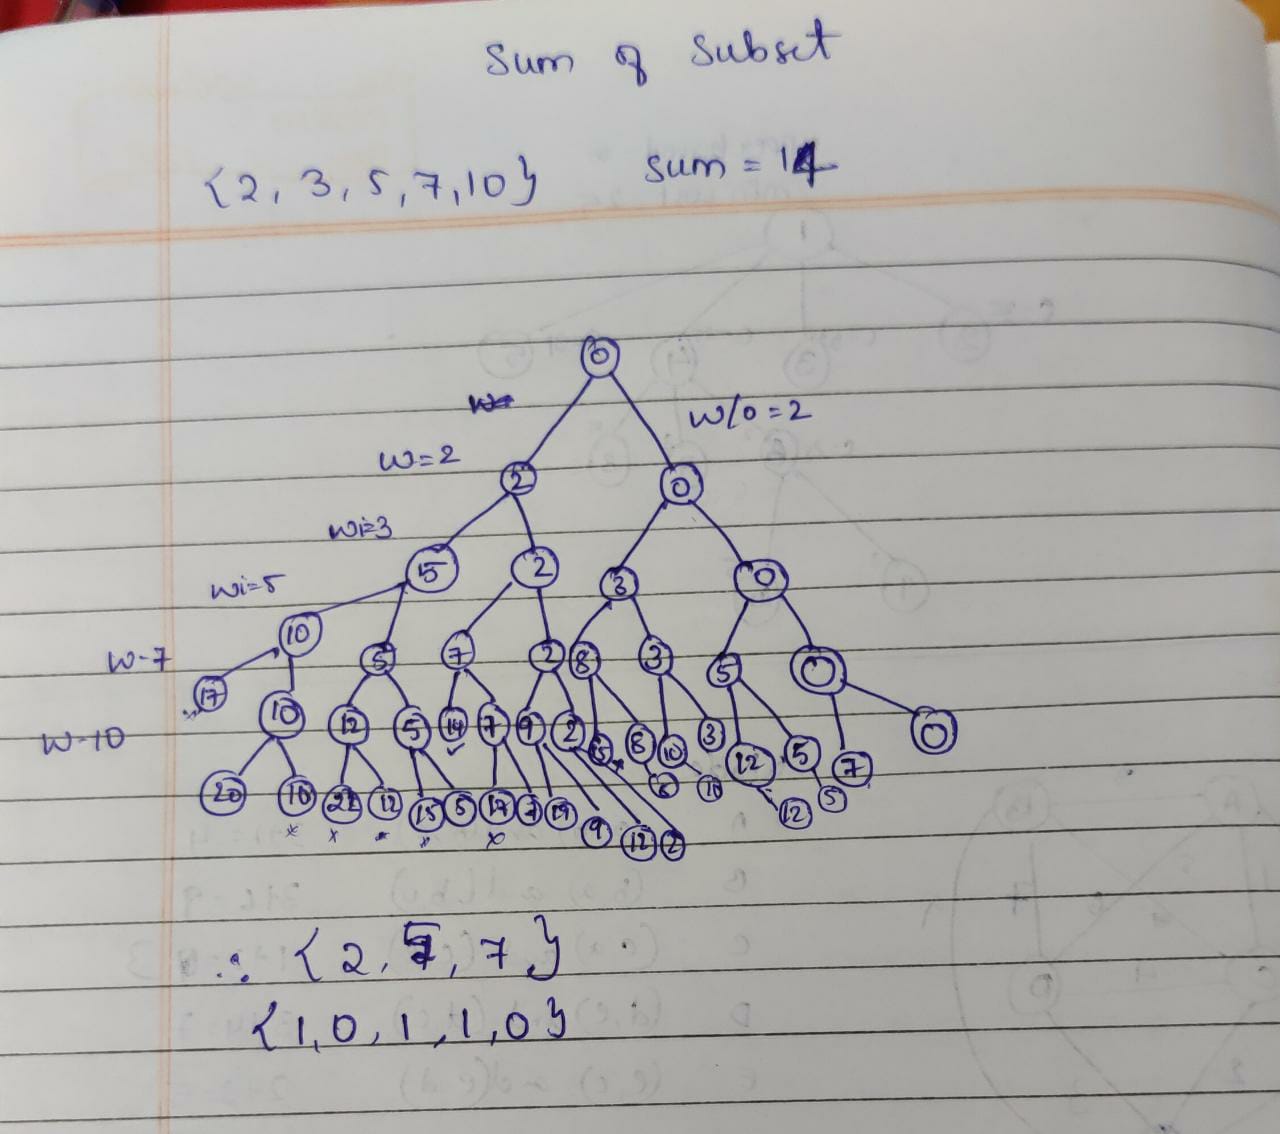 Sum of Subset
{2, 3, 5, 7, 10} Sum = 14
0
w/o = 2
w=2 2 0
wi=3 5 2 3 0
wi=5 10 5 7 2 8 3 5 0
w-7 17 10 12 5 14 7 9 2 8 10 3 12 5 7 0
w-10 20 10 12 15 5 17 7 19 9 12 2 10 12 5
∴ {2, 5, 7}
{1, 0, 1, 1, 0}